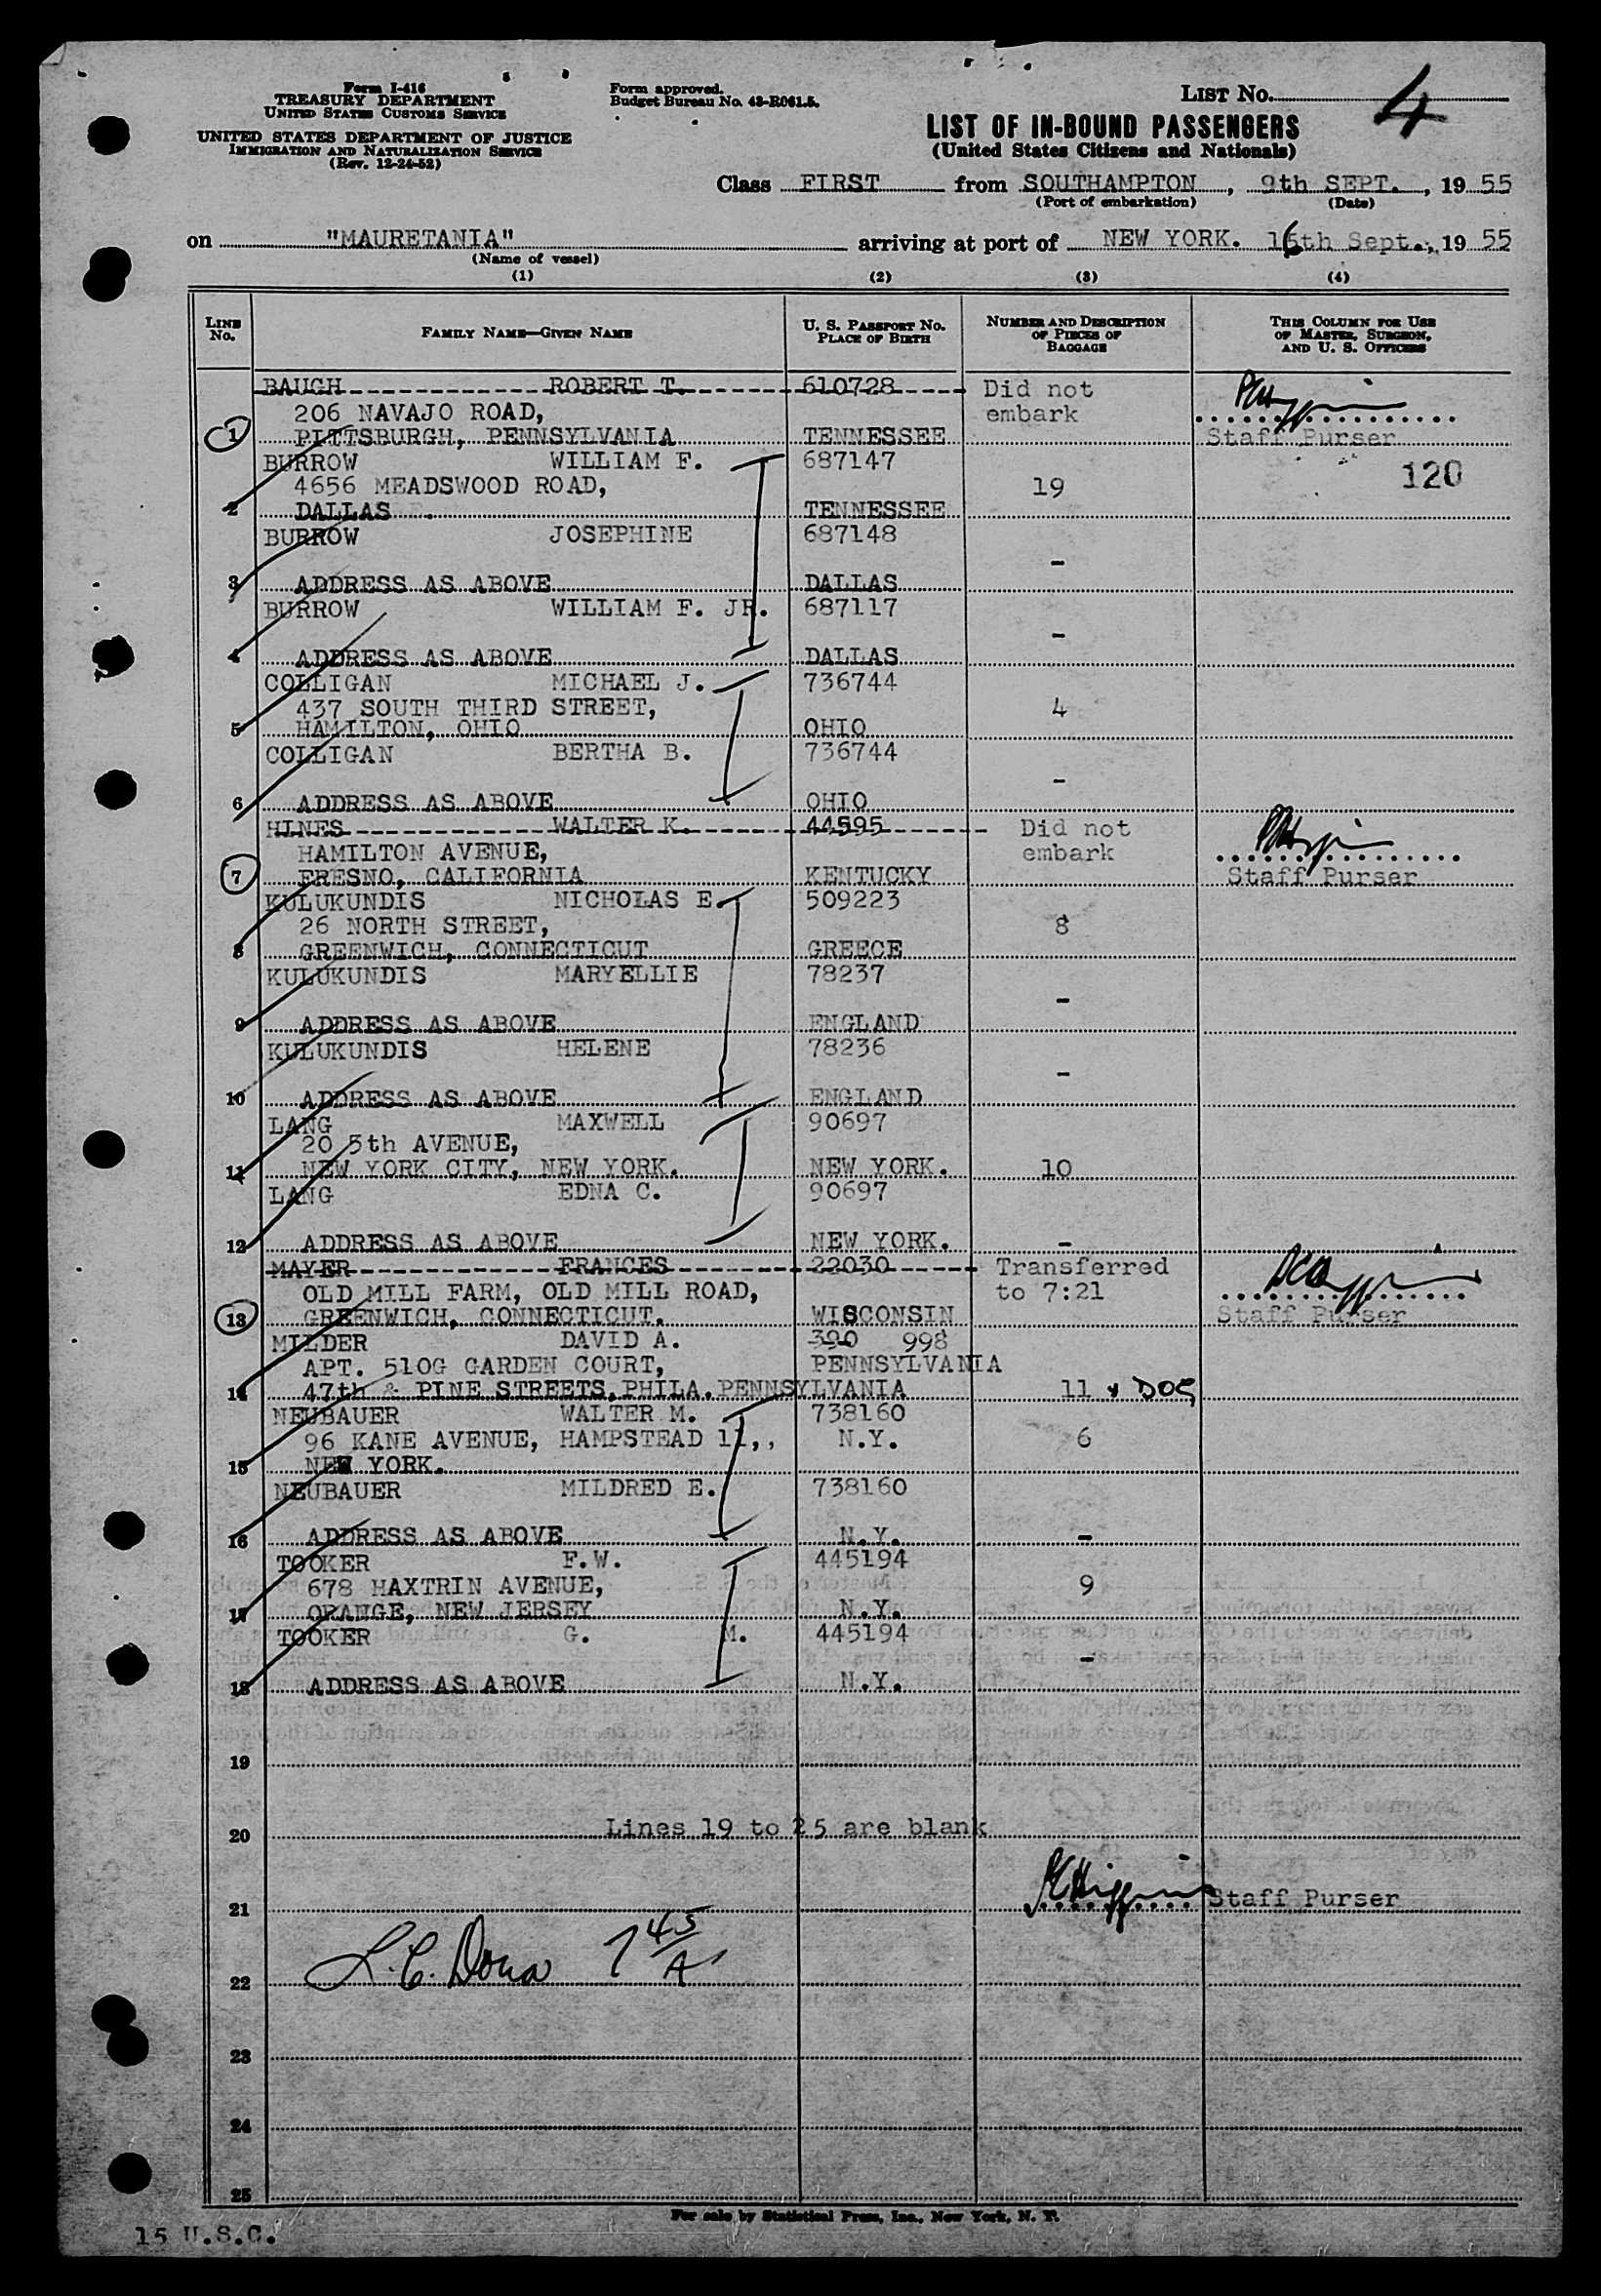 Form I-416
TREASURY DEPARTMENT
UNITED STATES CUSTOMS SERVICE
UNITED STATES DEPARTMENT OF JUSTICE
IMMIGRATION AND NATURALIZATION SERVICE
(Rev. 12-24-52)
Form approved.
Budget Bureau No. 43-R061.5.
LIST No. 4
LIST OF IN-BOUND PASSENGERS
(United States Citizens and Nationals)
Class FIRST from SOUTHAMPTON, 9th SEPT., 1955
(Port of embarkation) (Date)
on "MAURETANIA" arriving at port of NEW YORK. 16th Sept., 1955
(Name of vessel)
(1) (2) (3) (4)
LINE No. FAMILY NAME—GIVEN NAME U. S. PASSPORT No. PLACE OF BIRTH NUMBER AND DESCRIPTION OF PIECES OF BAGGAGE THIS COLUMN FOR USE OF MASTER, SURGEON, AND U. S. OFFICERS
BAUGH ROBERT T. 610728 Did not
206 NAVAJO ROAD, embark
1 PITTSBURGH, PENNSYLVANIA TENNESSEE Staff Purser
BURROW WILLIAM F. 687147 120
4656 MEADSWOOD ROAD, 19
2 DALLAS TENNESSEE
BURROW JOSEPHINE 687148
-
3 ADDRESS AS ABOVE DALLAS
BURROW WILLIAM F. JR. 687117
-
4 ADDRESS AS ABOVE DALLAS
COLLIGAN MICHAEL J. 736744
437 SOUTH THIRD STREET, 4
5 HAMILTON, OHIO OHIO
COLLIGAN BERTHA B. 736744
-
6 ADDRESS AS ABOVE OHIO
HINES WALTER K. 44595 Did not
HAMILTON AVENUE, embark
7 FRESNO, CALIFORNIA KENTUCKY Staff Purser
KULUKUNDIS NICHOLAS E. 509223
26 NORTH STREET, 8
8 GREENWICH, CONNECTICUT GREECE
KULUKUNDIS MARYELLIE 78237
-
9 ADDRESS AS ABOVE ENGLAND
KULUKUNDIS HELENE 78236
-
10 ADDRESS AS ABOVE ENGLAND
LANG MAXWELL 90697
20 5th AVENUE,
11 NEW YORK CITY, NEW YORK. NEW YORK. 10
LANG EDNA C. 90697
12 ADDRESS AS ABOVE NEW YORK. -
MAYER FRANCES 22030 Transferred
OLD MILL FARM, OLD MILL ROAD, to 7:21
13 GREENWICH, CONNECTICUT. WISCONSIN Staff Purser
MILDER DAVID A. 390 998
APT. 510G GARDEN COURT, PENNSYLVANIA
14 47th & PINE STREETS, PHILA. PENNSYLVANIA 11 & DOG
NEUBAUER WALTER M. 738160
96 KANE AVENUE, HAMPSTEAD 11,, N.Y. 6
15 NEW YORK.
NEUBAUER MILDRED E. 738160
16 ADDRESS AS ABOVE N.Y. -
TOOKER F.W. 445194
678 HAXTRIN AVENUE, 9
17 ORANGE, NEW JERSEY N.Y.
TOOKER G. M. 445194
-
18 ADDRESS AS ABOVE N.Y.
19
20 Lines 19 to 25 are blank
21 Staff Purser
22
23
24
25
For sale by Statistical Press, Inc., New York, N. Y.
15 U.S.C.